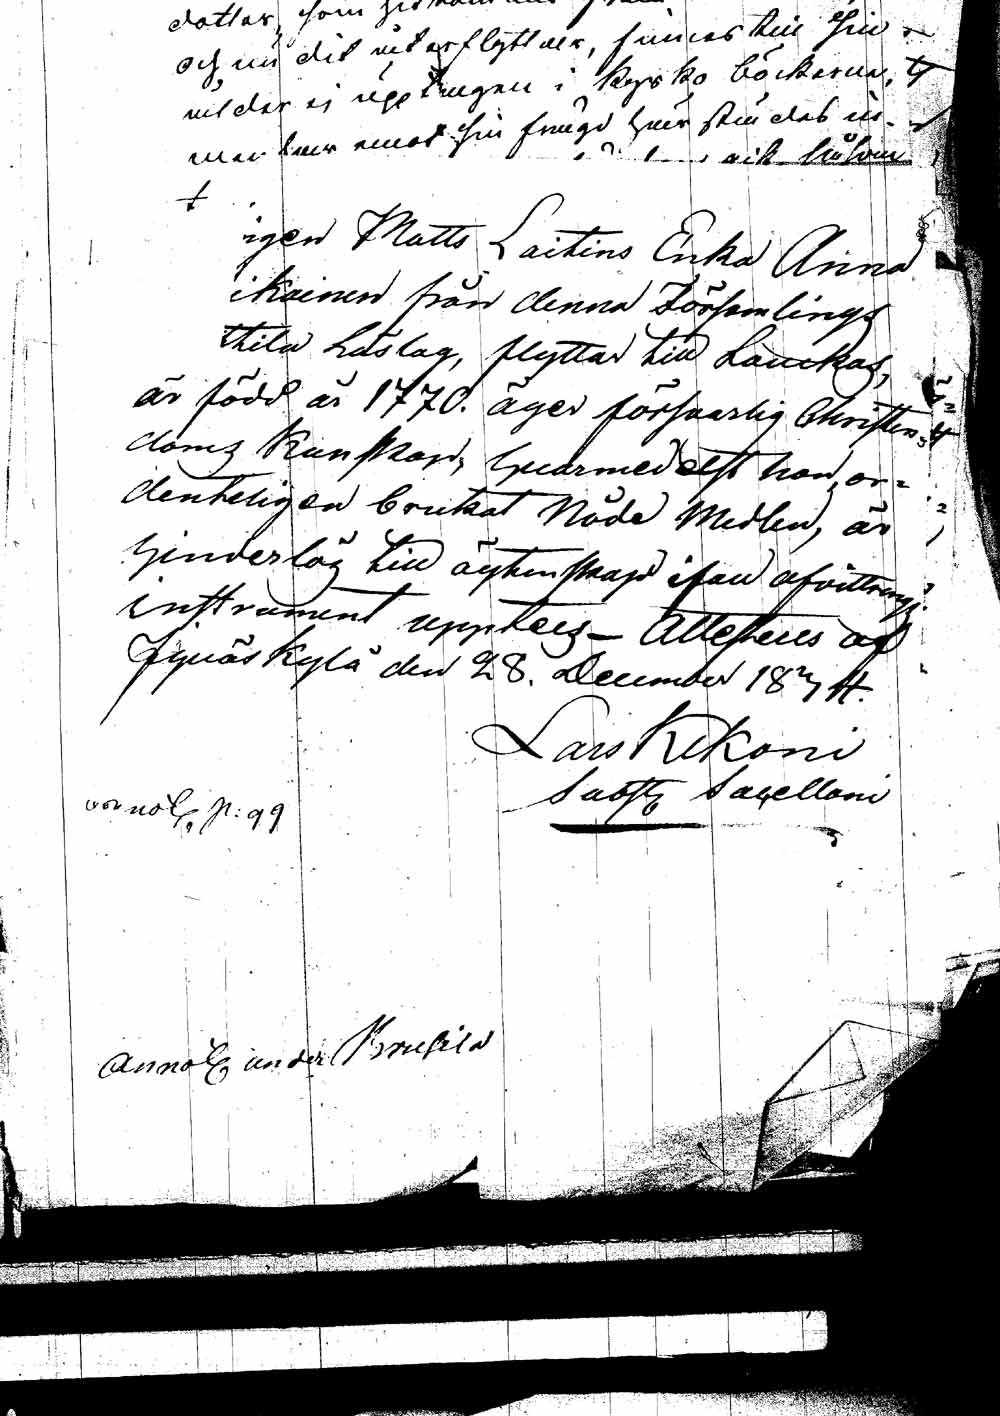 dotter, som
och nu dit återflyttar, finnes till sin
ålder ej upptagen i kyrko böckerna,
igen Matts Laitins Enka Anna
ikainen från denna Församlings
thila Låslag, flyttar till Laukas,
är född år 1770. äger försvarlig Christen-
doms Kunskap, hvarmedelst hon or-
denteligen brukat Nåde Medlen, är
hinderlös till äghtenskap ifall afvittrings
instrument uppteés – Attesteras af
Jyväskylä den 28. December 1824.
Lars Kekoni
Subst Sacellani
annot, p: 99
annot under Krusila